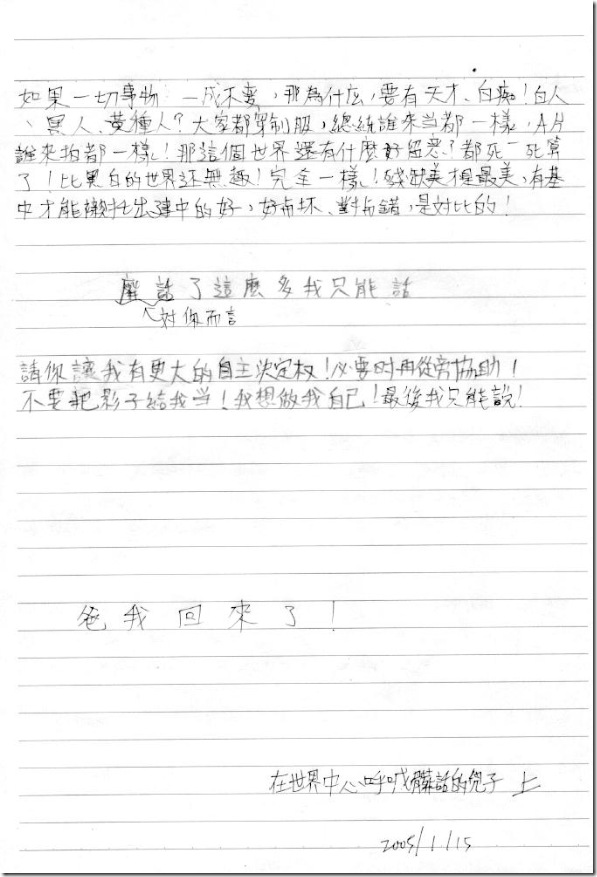 如果一切事物 一成不變，那為什么，要有天才、白痴！白人
、異人、黃種人？大家都穿制服，總統誰來当都一樣，A片
誰來拍都一樣！那這個世界還有什麼好留恋？都死一死算
了！比黑白的世界还無趣！完全一樣！殘缺美才是最美，有基
中才能襯托出建中的好，好 坏、對 錯，是对比的！
廢話了這麼多我只能話
对你而言
請你讓我有更大的自主決定权！必要时再從旁協助！
不要把影子給我当！我想做我自己！最後我只能說！
爸我回來了！
在世界中心呼喊髒話的兒子 上
2005/1/15